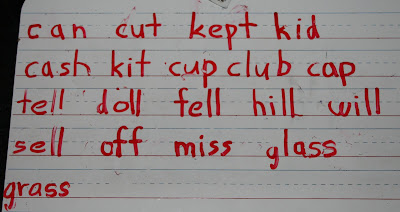 can cut kept kid
cash kit cup club cap
tell doll fell hill will
sell off miss glass
grass